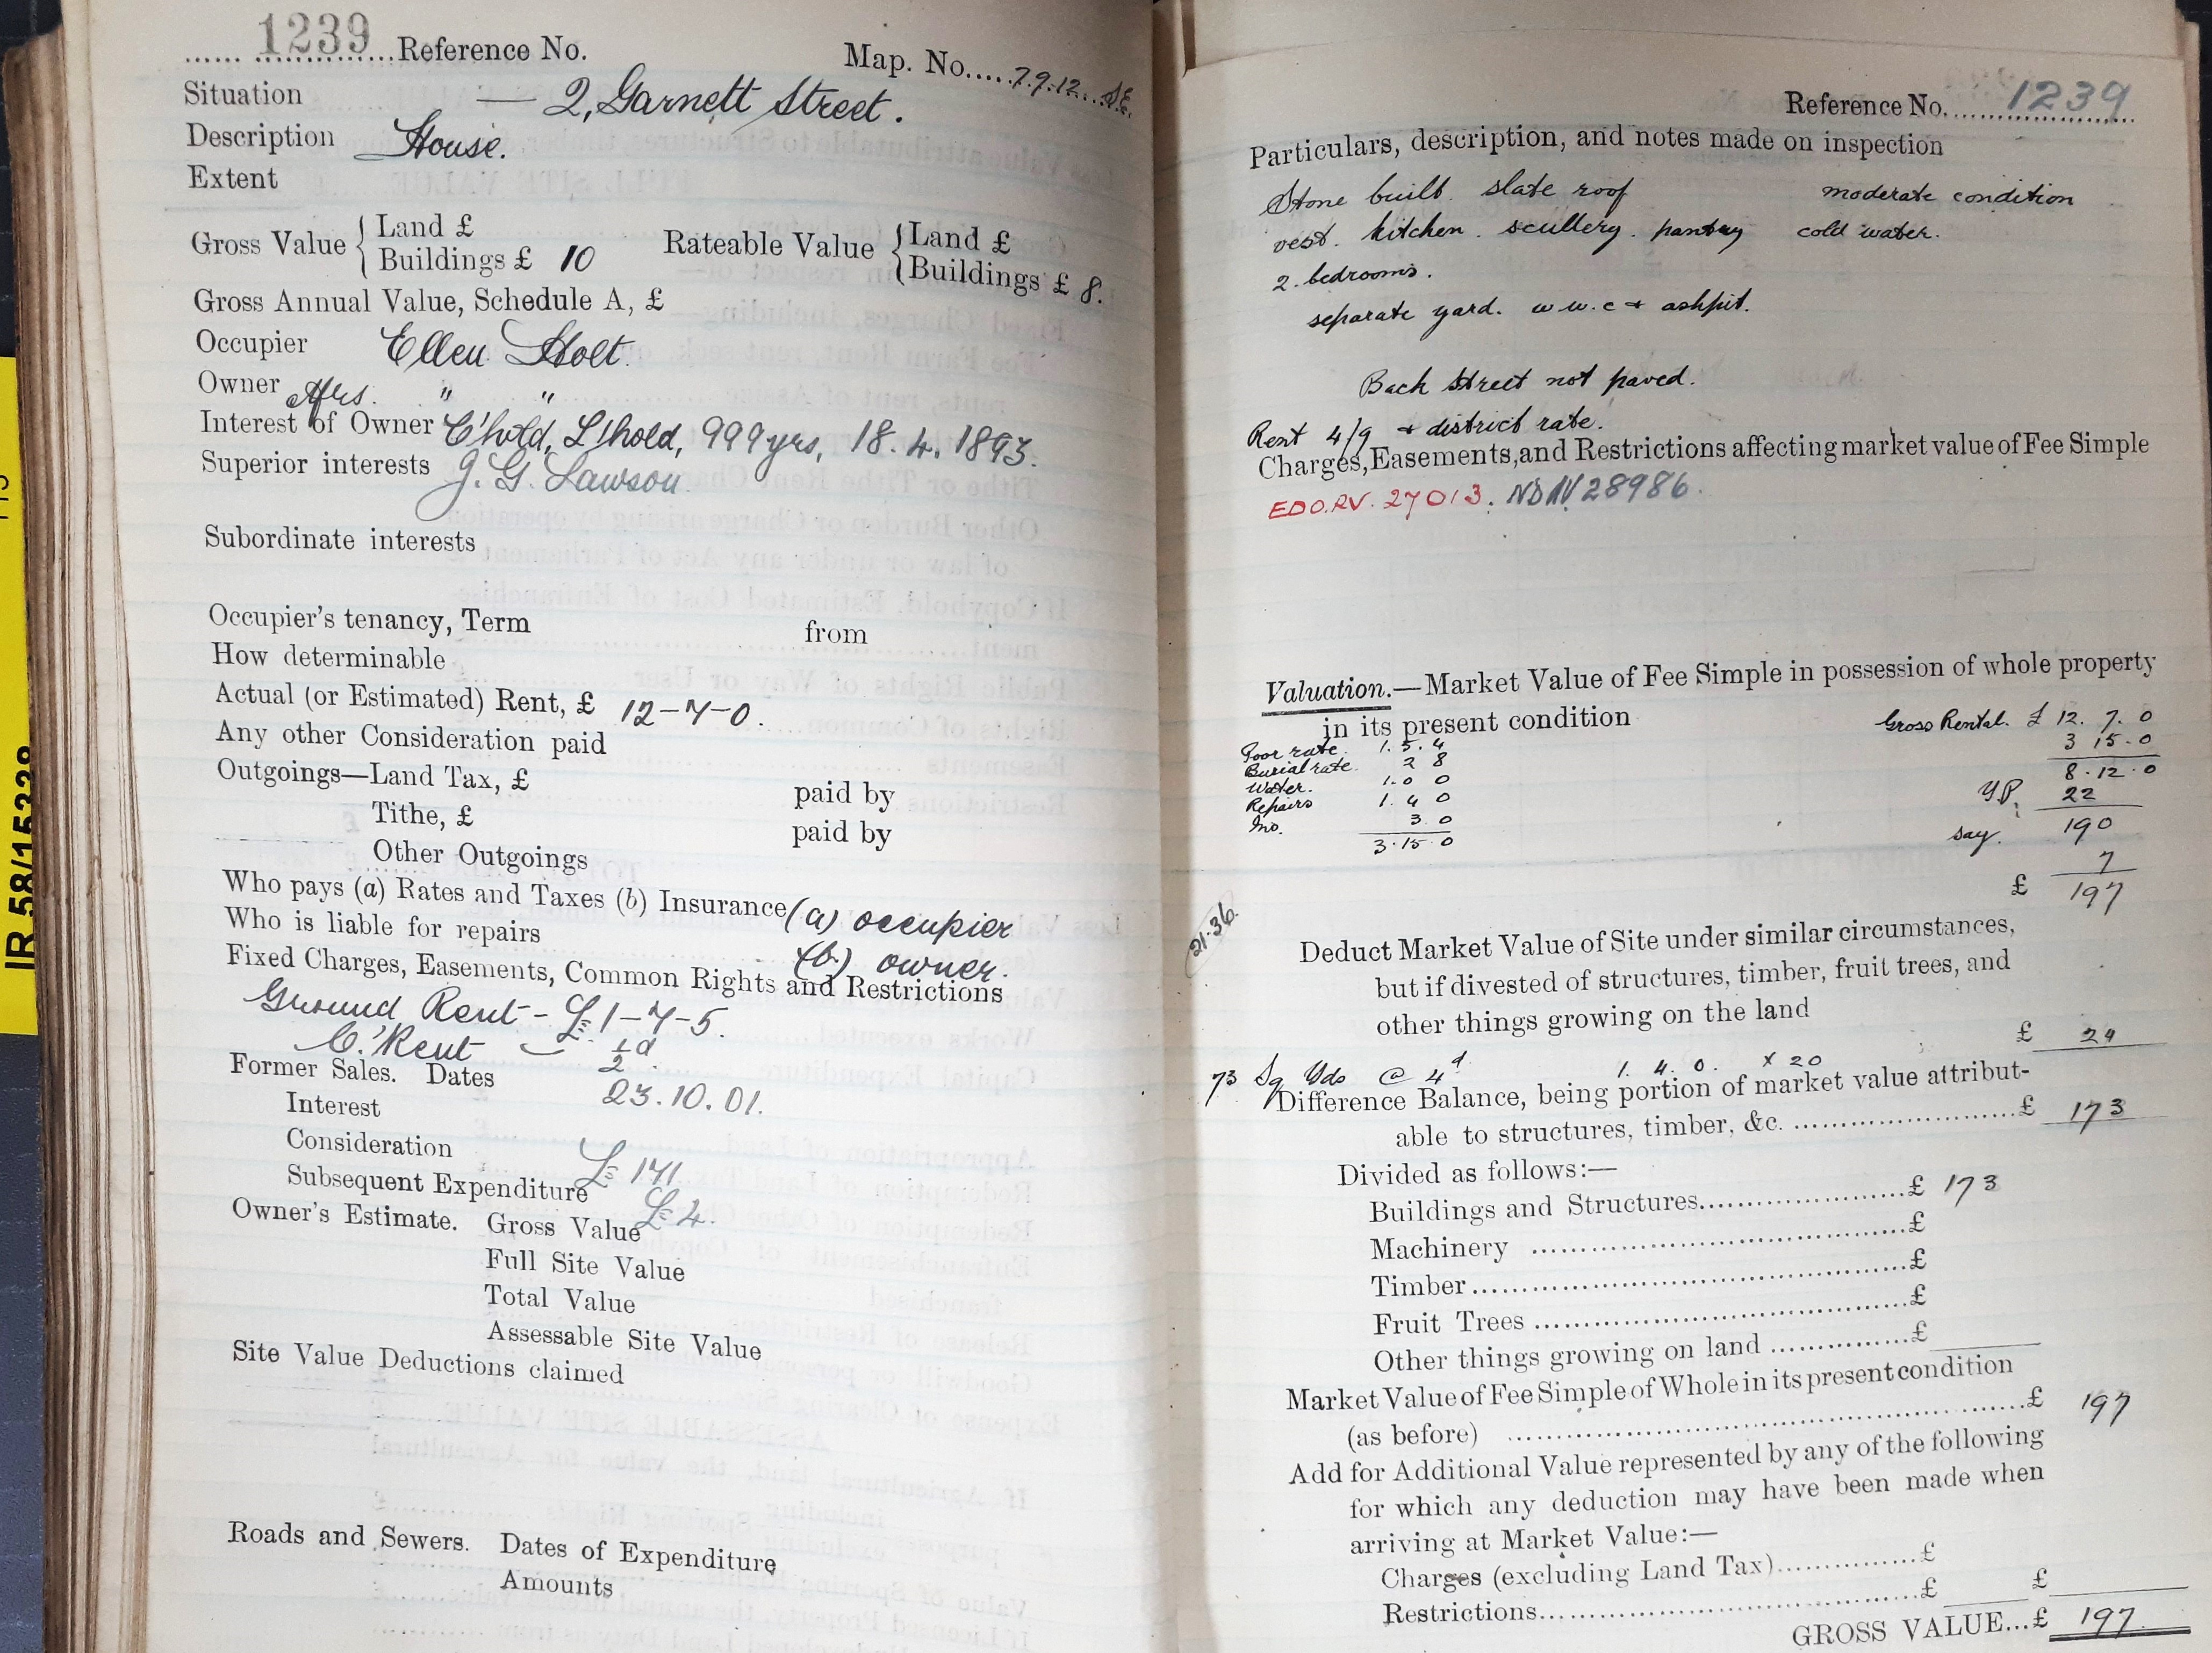 IR 58/15328
1239 Reference No. Map. No. 79.12. S.E.
Situation — 2, Garnett Street.
Description House.
Extent
Gross Value { Land £
Buildings £ 10
Rateable Value { Land £
Buildings £ 8.
Gross Annual Value, Schedule A, £
Occupier Ellen Holt.
Owner Mrs. " "
Interest of Owner C'hold, L'hold, 999 yrs, 18.4.1893.
Superior interests J. G. Lawson
Subordinate interests
Occupier's tenancy, Term from
How determinable
Actual (or Estimated) Rent, £ 12-7-0.
Any other Consideration paid
Outgoings—Land Tax, £ paid by
Tithe, £ paid by
Other Outgoings
Who pays (a) Rates and Taxes (b) Insurance (a) occupier
Who is liable for repairs (b) owner.
Fixed Charges, Easements, Common Rights and Restrictions
Ground Rent - £1-7-5.
C. Rent — ½d
Former Sales. Dates 23.10.01.
Interest
Consideration £171
Subsequent Expenditure £4.
Owner's Estimate. Gross Value
Full Site Value
Total Value
Assessable Site Value
Site Value Deductions claimed
Roads and Sewers. Dates of Expenditure
Amounts
Reference No. 1239
Particulars, description, and notes made on inspection
Stone built. slate roof moderate condition
vest. kitchen. scullery. pantry cold water.
2. bedrooms.
separate yard. w.w.c + ashpit.
Back Street not paved.
Rent 4/9 + district rate.
Charges, Easements, and Restrictions affecting market value of Fee Simple
EDO.RV. 27013. NDRV 28986.
Valuation.—Market Value of Fee Simple in possession of whole property
in its present condition Gross Rental. £ 12. 7. 0
Poor rate. 1. 5. 4 3 15. 0
Burial rate. 2 8 8. 12. 0
Water. 1. 0 0 Y.P. 22
Repairs 1. 4 0 say. 190
Ins. 3. 0 7
3. 15. 0 £ 197
21.36.
Deduct Market Value of Site under similar circumstances,
but if divested of structures, timber, fruit trees, and
other things growing on the land £ 24
73 Sq Yds @ 4d 1. 4. 0. x 20
Difference Balance, being portion of market value attribut-
able to structures, timber, &c. £ 173
Divided as follows:—
Buildings and Structures £ 173
Machinery £
Timber £
Fruit Trees £
Other things growing on land £
Market Value of Fee Simple of Whole in its present condition
(as before) £ 197
Add for Additional Value represented by any of the following
for which any deduction may have been made when
arriving at Market Value:—
Charges (excluding Land Tax) £
Restrictions £ £
GROSS VALUE...£ 197